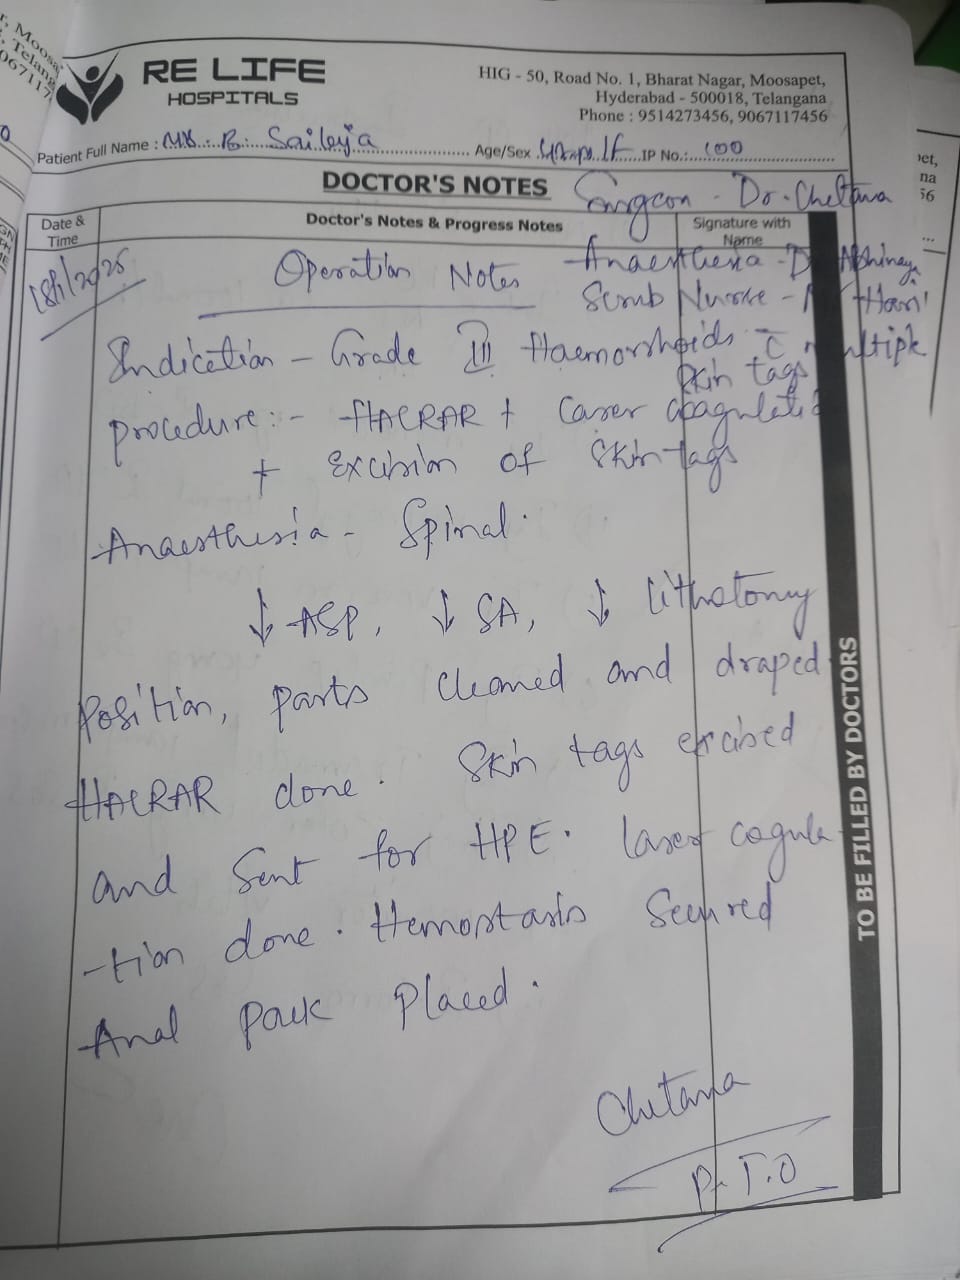 RE LIFE
HOSPITALS
HIG - 50, Road No. 1, Bharat Nagar, Moosapet,
Hyderabad - 500018, Telangana
Phone : 9514273456, 9067117456
Patient Full Name : B. Saileja Age/Sex IP No.: 100
DOCTOR'S NOTES Surgeon - Dr. Chetana
Date & Time
Doctor's Notes & Progress Notes
Signature with Name
18/1/2025
Operation Notes
Anaesthesia - Dr Abhinaya
Scrub Nurse -
Indication - Grade III Haemorrhoids c multiple
skin tags
Procedure :- HALRAR + Laser coagulatio
+ Excision of skin tags
Anaesthesia - Spinal.
↓ ASP, ↓ SA, ↓ Lithotomy
Position, parts cleaned and draped
HALRAR done. Skin tags excised
and sent for HPE. Laser coagula
-tion done. Hemostasis secured
Anal pack placed.
Chetana
P.T.O
TO BE FILLED BY DOCTORS